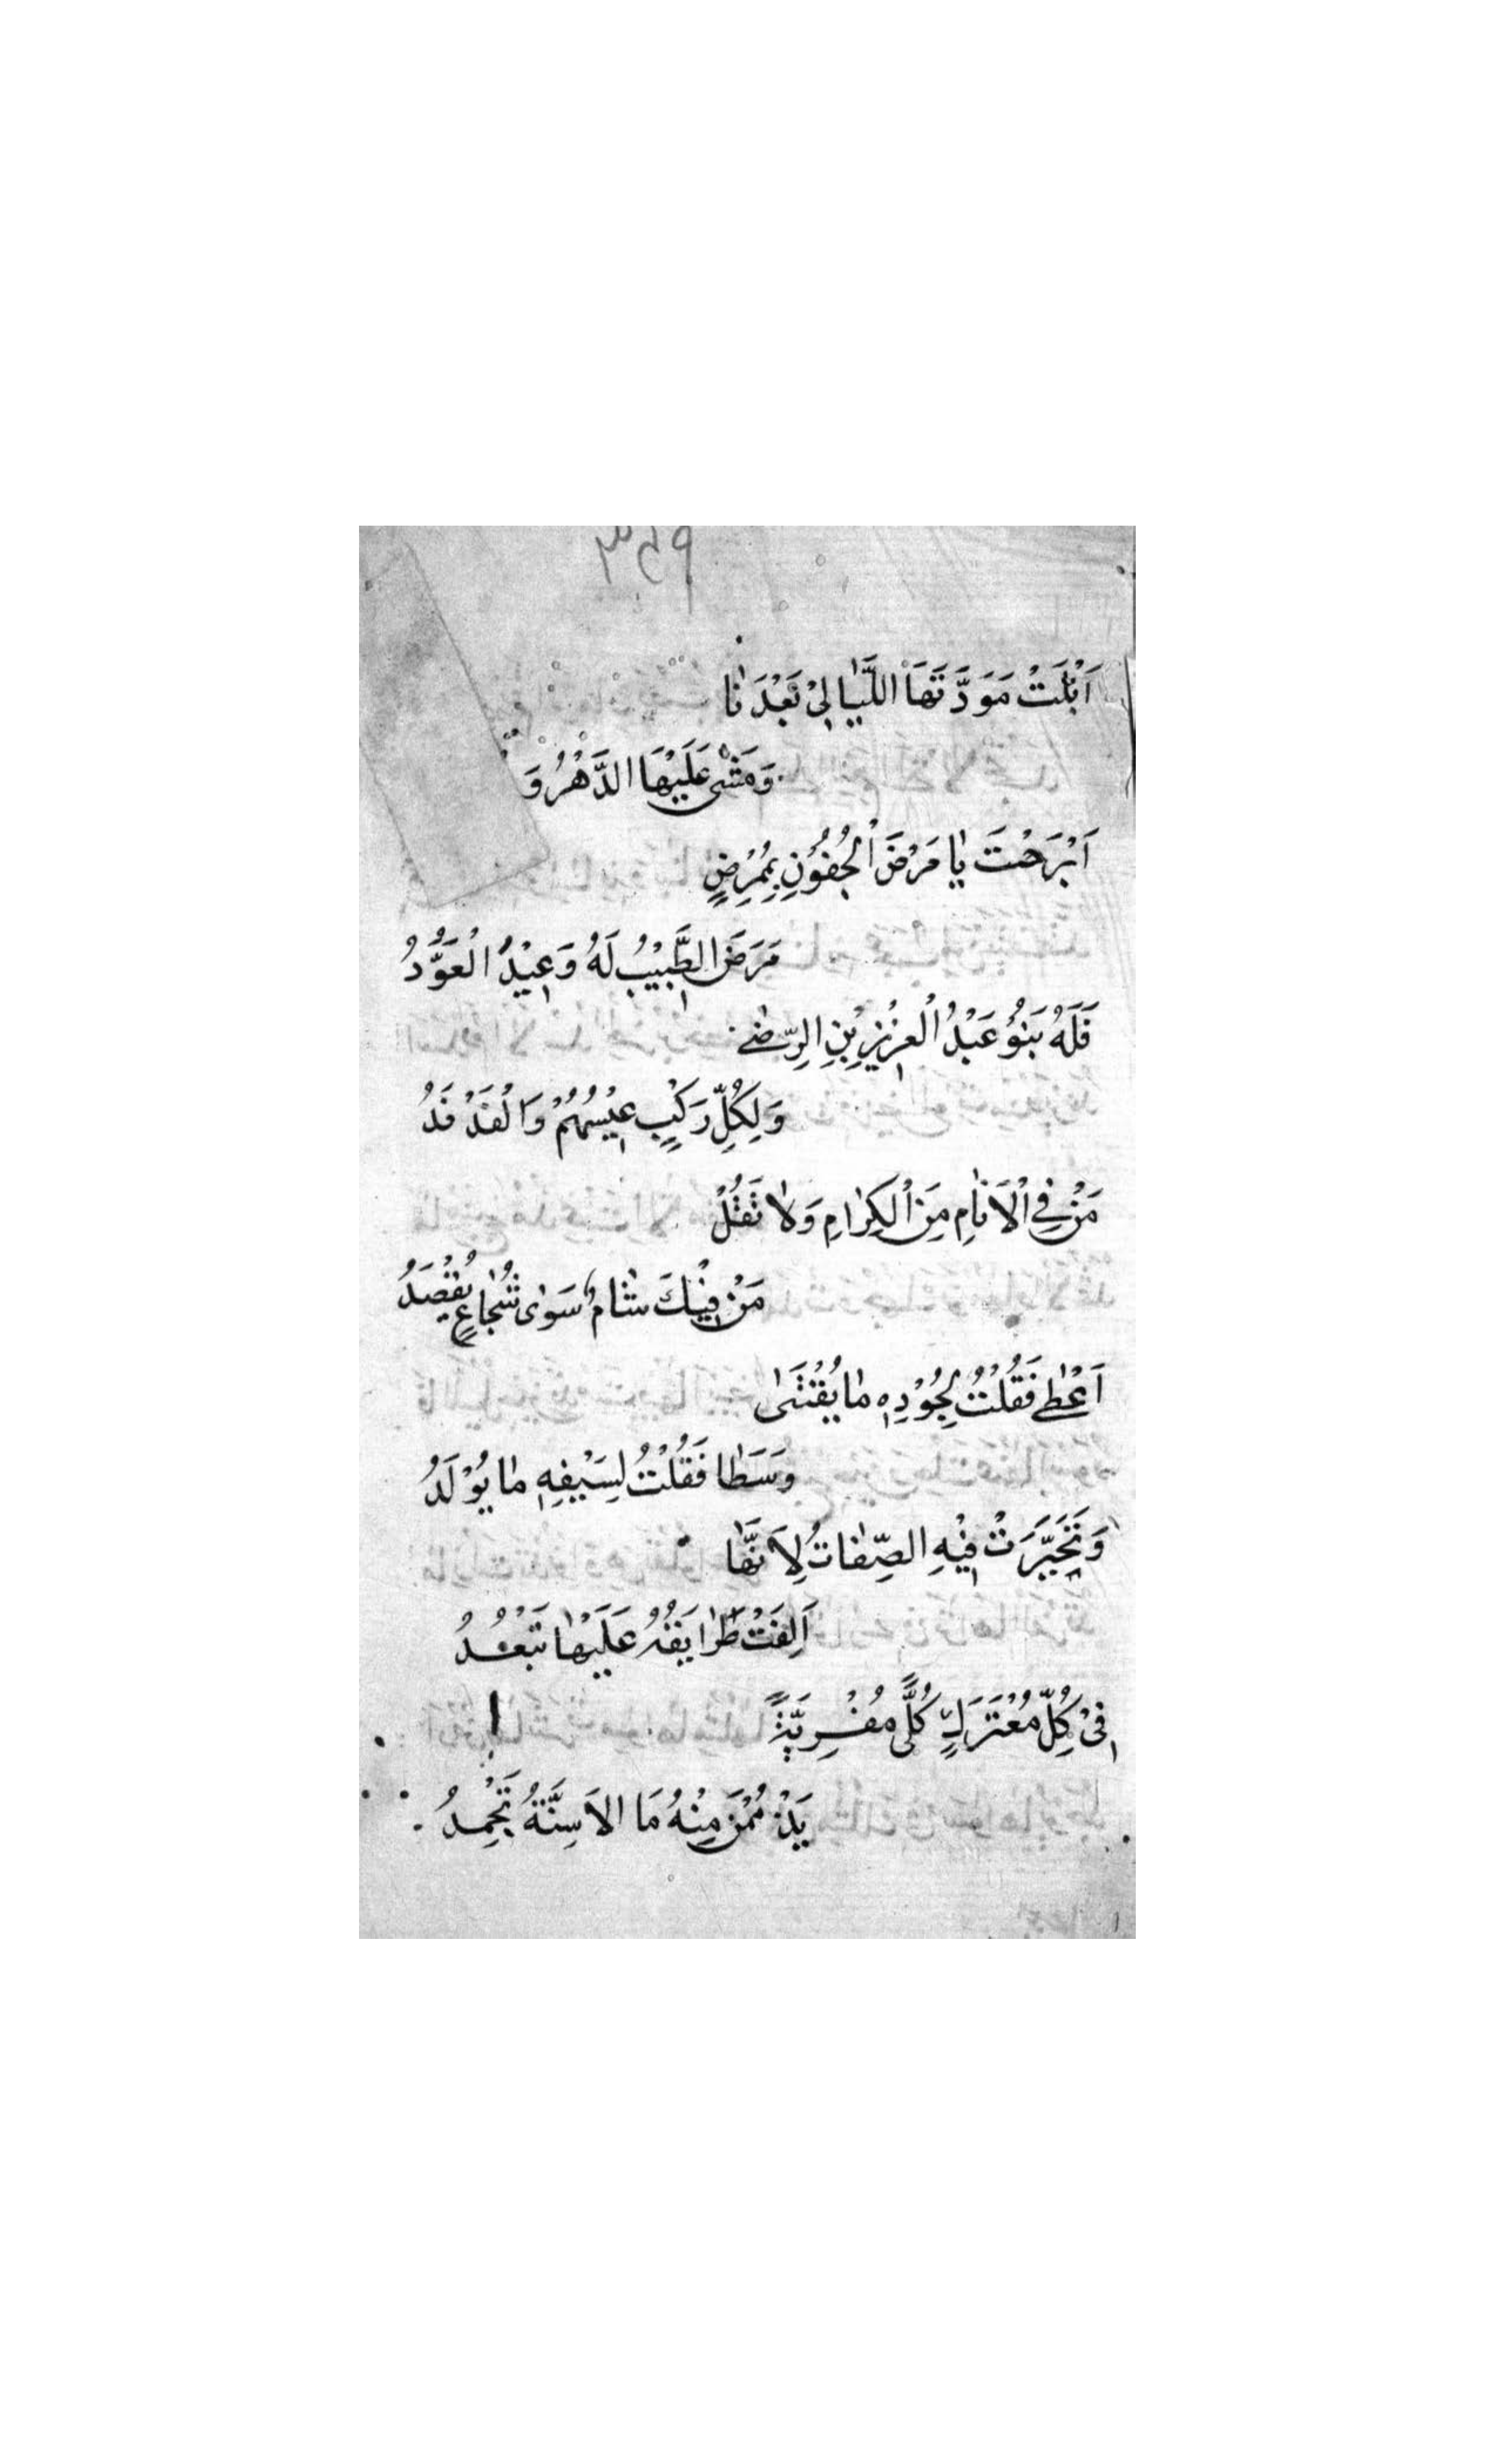 ٣٥٩
اَبْلَتْ مَوَدَّتَهَا اللَّيٰالِيْ بَعْدَنٰا
وَمَشٰى عَلَيْهَا الدَّهْرُ وَ
اَبْرَحْتَ يٰا مَرَضَ الْجُفُوْنِ بِمُمْرِضٍ
مَرَضَ الطَّبِيْبُ لَهُ وَعِيْدُ الْعَوَّدُ
فَلَهُ بَنُوْ عَبْدُ الْعَزِيْزِ بْنِ الرِّضٰي
وَلِكُلِّ رَكْبٍ عِيْسُهُمْ وَالْفَدْفَدُ
مَنْ فِي الْاَنٰامِ مِنَ الْكِرٰامِ وَلاٰ تَقُلْ
مَنْ فِيْكَ شٰامُ سَوٰى شُجٰاعٍ يُقْصَدُ
اَعْطٰي فَقُلْتُ لِجُوْدِهِ مٰا يُقْتَنٰى
وَسَطٰا فَقُلْتُ لِسَيْفِهِ مٰا يُوْلَدُ
وَتَحَيَّرَتْ فِيْهِ الصِّفٰاتُ لِاَنَّهٰا
اَلِفَتْ طَرٰايَقُهُ عَلَيْهٰا تَبْعُدُ
فِيْ كُلِّ مُعْتَرَكٍ كُلًّى مُفْرِيَّةً
يَذْمُمْنَ مِنْهُ مَا الاَسِنَّةُ تَحْمِدُ